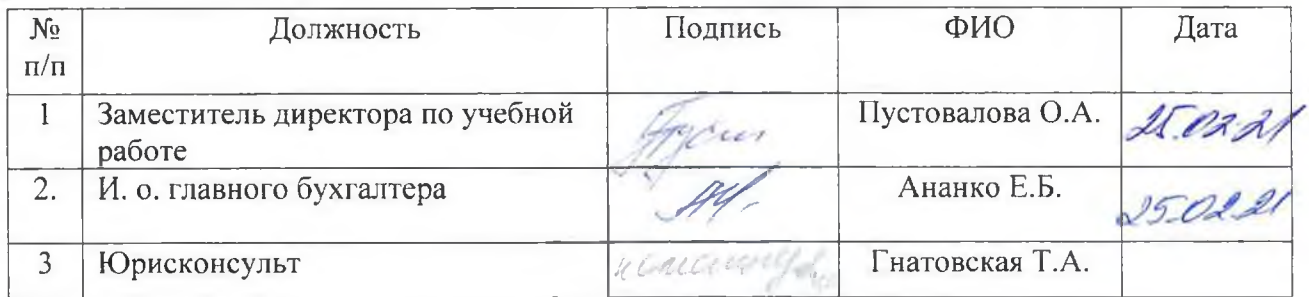 № п/п Должность Подпись ФИО Дата
1 Заместитель директора по учебной Пустовалова О.А. 25.02.21
работе
2. И. о. главного бухгалтера Ананко Е.Б. 25.02.21
3 Юрисконсульт Гнатовская Т.А.